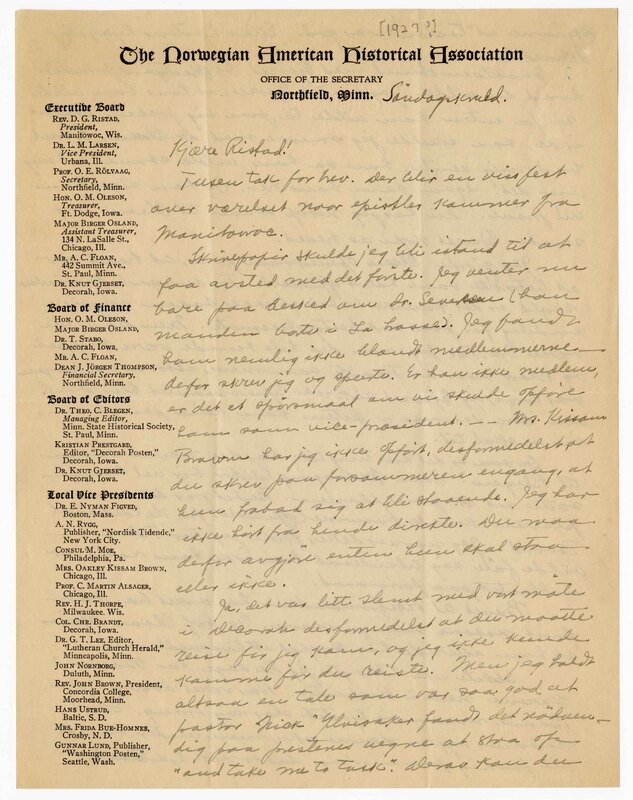 [1927?]
The Norwegian American Historical Association
OFFICE OF THE SECRETARY
Northfield, Minn.
Söndagskveld.
Executive Board
REV. D. G. RISTAD,
President,
Manitowoc, Wis.
DR. L. M. LARSEN,
Vice President,
Urbana, Ill.
PROF. O. E. RÖLVAAG,
Secretary,
Northfield, Minn.
HON. O. M. OLESON,
Treasurer,
Ft. Dodge, Iowa.
MAJOR BIRGER OSLAND,
Assistant Treasurer,
134 N. LaSalle St.,
Chicago, Ill.
MR. A. C. FLOAN,
442 Summit Ave.,
St. Paul, Minn.
DR. KNUT GJERSET,
Decorah, Iowa.
Board of Finance
HON. O. M. OLESON,
MAJOR BIRGER OSLAND,
DR. T. STABO,
Decorah, Iowa,
MR. A. C. FLOAN,
DEAN J. JÖRGEN THOMPSON,
Financial Secretary,
Northfield, Minn.
Board of Editors
DR. THEO. C. BLEGEN,
Managing Editor,
Minn. State Historical Society,
St. Paul, Minn.
KRISTIAN PRESTGARD,
Editor, "Decorah Posten,"
Decorah, Iowa.
DR. KNUT GJERSET,
Decorah, Iowa.
Local Vice Presidents
DR. E. NYMAN FIGVED,
Boston, Mass.
A. N. RYGG,
Publisher, "Nordisk Tidende,"
New York City.
CONSUL M. MOE,
Philadelphia, Pa.
MRS. OAKLEY KISSAM BROWN,
Chicago, Ill.
PROF. C. MARTIN ALSAGER,
Chicago, Ill.
REV. H. J. THORPE,
Milwaukee. Wis.
COL. CHR. BRANDT,
Decorah, Iowa.
DR. G. T. LEE, Editor,
"Lutheran Church Herald,"
Minneapolis, Minn.
JOHN NORNBORG,
Duluth, Minn.
REV. JOHN BROWN, President,
Concordia College,
Moorhead, Minn.
HANS USTRUD,
Baltic, S. D.
MRS. FRIDA BUE-HOMNES,
Crosby, N. D.
GUNNAR LUND, Publisher,
"Washington Posten,"
Seattle, Wash.
Kjære Ristad!
Tusen tak for brev. Der blir en viss fest
over værelset naar epistler kommer fra
Manitowoc.
Skrivepapir skulde jeg bli istand til at
faa avsted med det förste. Jeg venter nu
bare paa besked om Dr. (han
manden borte i La Crosse). Jeg fandt
ham nemlig ikke blandt medlemmerne—
derfor skrev jeg og spurte. Er han ikke medlem,
er det et spörsmaal om vi skulde opföre
ham som vice-president. — — Mrs. Kissam
Brown har jeg ikke opfört, desformedelst at
du skrev paa forsommeren engang, at
hun frabad sig at bli staaende. Jeg har
ikke hört fra hende direkte. Du maa
derfor avgjöre enten hun skal staa
eller ikke.
Ja, det var litt slemt med vort möte
i Decorah desformedelst at du maatte
reise för jeg kom, og jeg ikke kunde
komme för du reiste. Men jeg holdt
altsaa en tale som var saa god, at
pastor "Nick" Ylvisaker fandt det nödven-
dig paa prestenes vegne at staa op
"and take me to task". Derav kan du